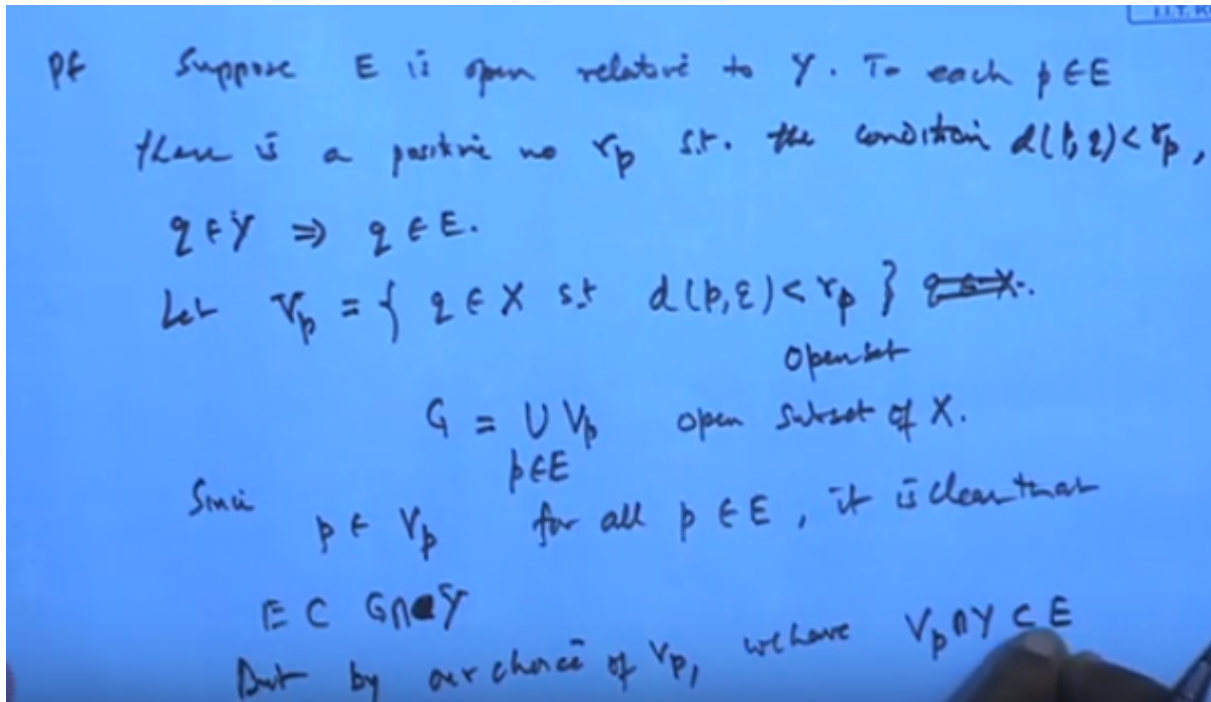 I.I.T. K
Pf Suppose E is open relative to Y. To each p ∈ E
there is a positive no r_p s.t. the condition d(p,q) < r_p,
q ∈ Y ⇒ q ∈ E.
Let V_p = { q ∈ X s.t d(p,q) < r_p } q ∈ X.
open set
G = ∪ V_p open subset of X.
p∈E
Since p ∈ V_p for all p ∈ E, it is clear that
E ⊂ G∩Y
But by our choice of V_p, we have V_p ∩ Y ⊂ E